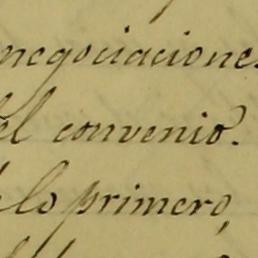 negociacione
el convenio.
lo primero,